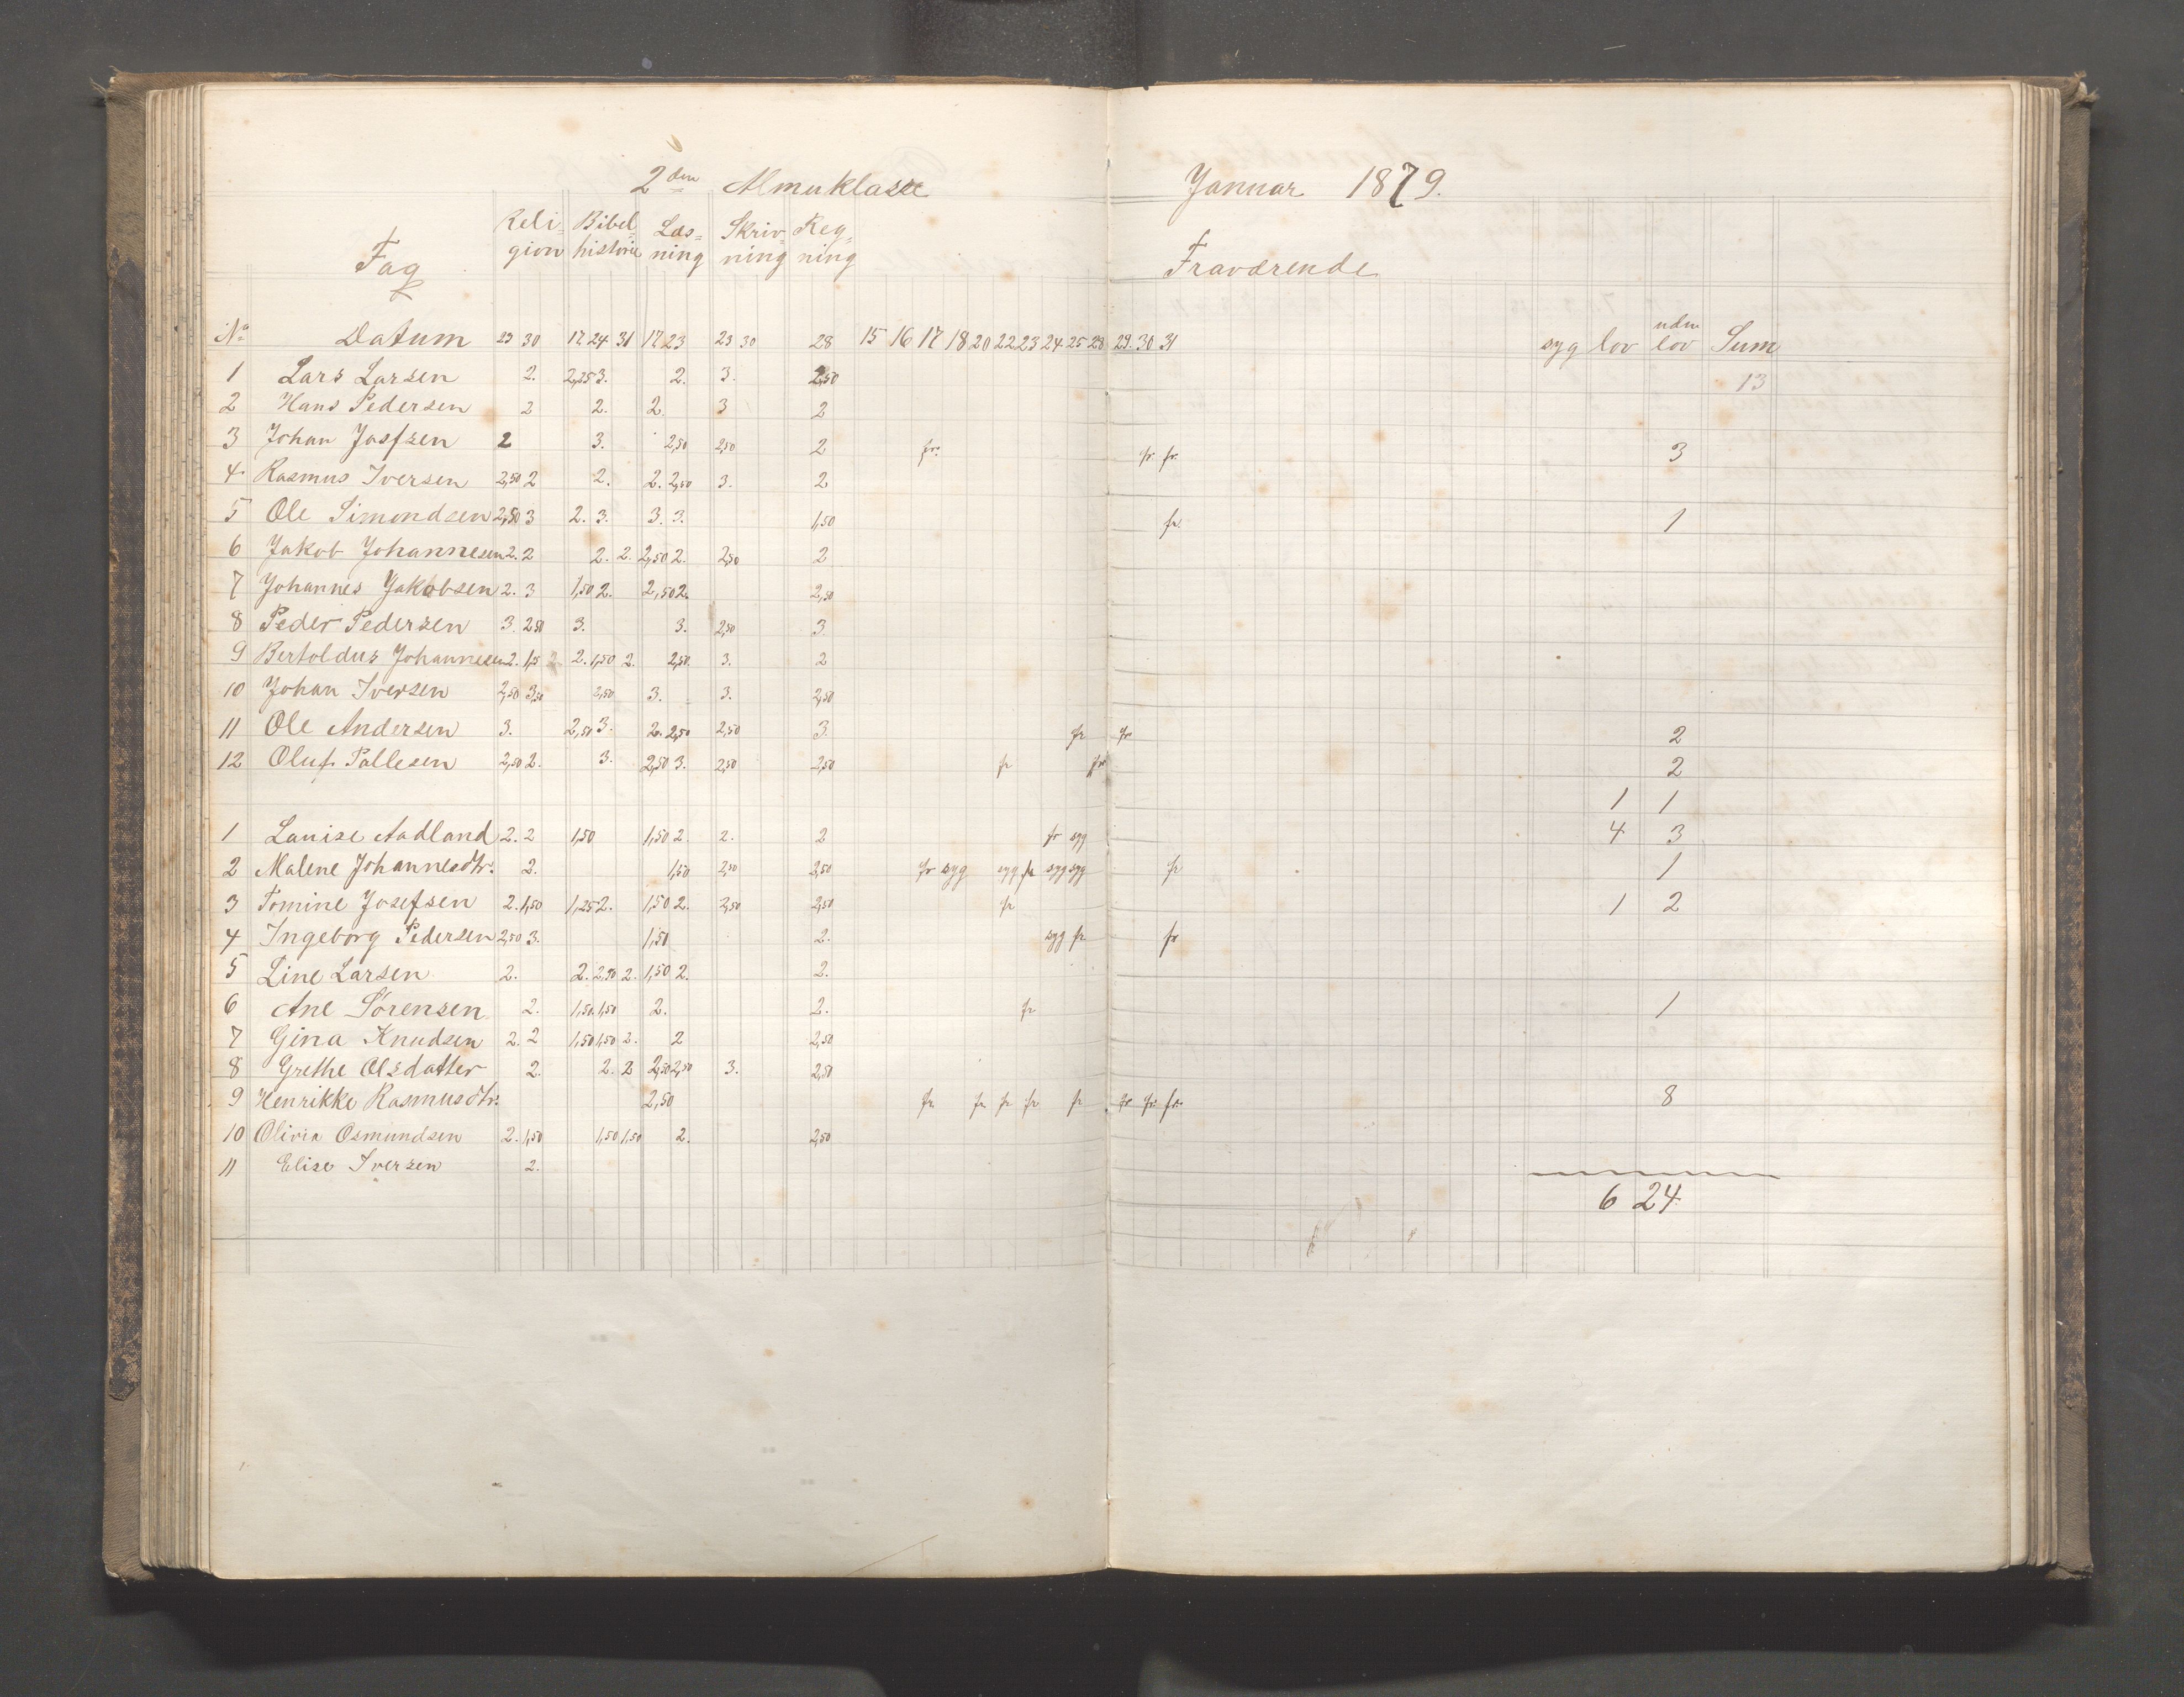 2den Almuklasse Januar 1879.
Fag Reli-gion Bibel-historie Læs-ning Skriv-ning Reg-ning Fraværende
No Datum 23 30 17 24 31 17 23 23 30 28 15 16 17 18 20 22 23 24 25 28 29. 30 31 syg lov uden lov Sum
1 Lars Larsen 2. 2,25 3. 2. 3. 2,50 13
2 Hans Pedersen 2 2. 2. 3 2
3 Johan Josfsen 2 3. 2,50 2,50 2 fr. fr. fr. 3
4 Rasmus Iversen 2,50 2 2. 2. 2,50 3. 2
5 Ole Simondsen 2,50 3 2. 3. 3. 3. 1,50 fr. 1
6 Jakob Johannesen 2. 2 2. 2. 2,50 2. 2,50 2
7 Johannes Jakobsen 2. 3 1,50 2. 2,50 2. 2,50
8 Peder Pedersen 3. 2,50 3. 3. 2,50 3
9 Bertoldus Johannesen 2. 1,5 2. 1,50 2. 2,50 3. 2
10 Johan Iversen 2,50 3,50 2,50 3. 3. 2,50
11 Ole Andersen 3. 2,50 3. 2. 2,50 2,50 3. fr fr 2
12 Oluf Pallesen 2,50 2. 3. 2,50 3. 2,50 2,50 fr fr 2
1 1
1 Lauise Aadland 2. 2 1,50 1,50 2. 2. 2 fr syg 4 3
2 Malene Johannesdtr. 2. 1,50 2,50 2,50 fr syg syg fr syg syg fr 1
3 Tomine Josefsen 2. 1,50 1,25 2. 1,50 2. 2,50 2,50 fr 1 2
4 Ingeborg Pedersen 2,50 3. 1,50 2. syg fr. fr
5 Line Larsen 2. 2. 2,50 2. 1,50 2. 2.
6 Ane Sørensen 2. 1,50. 1,50 2. 2. fr 1
7 Gina Knudsen 2. 2 1,50 1,50 2. 2 2,50
8 Grethe Olsdatter 2. 2. 2 2,50 2,50 3. 2,50
9 Henrikke Rasmusdtr. 2,50 fr. fr fr fr fr fr fr. fr. 8
10 Olivia Osmundsen 2. 1,50 1,50 1,50 2. 2,50
11 Elise Iversen 2.
6 24